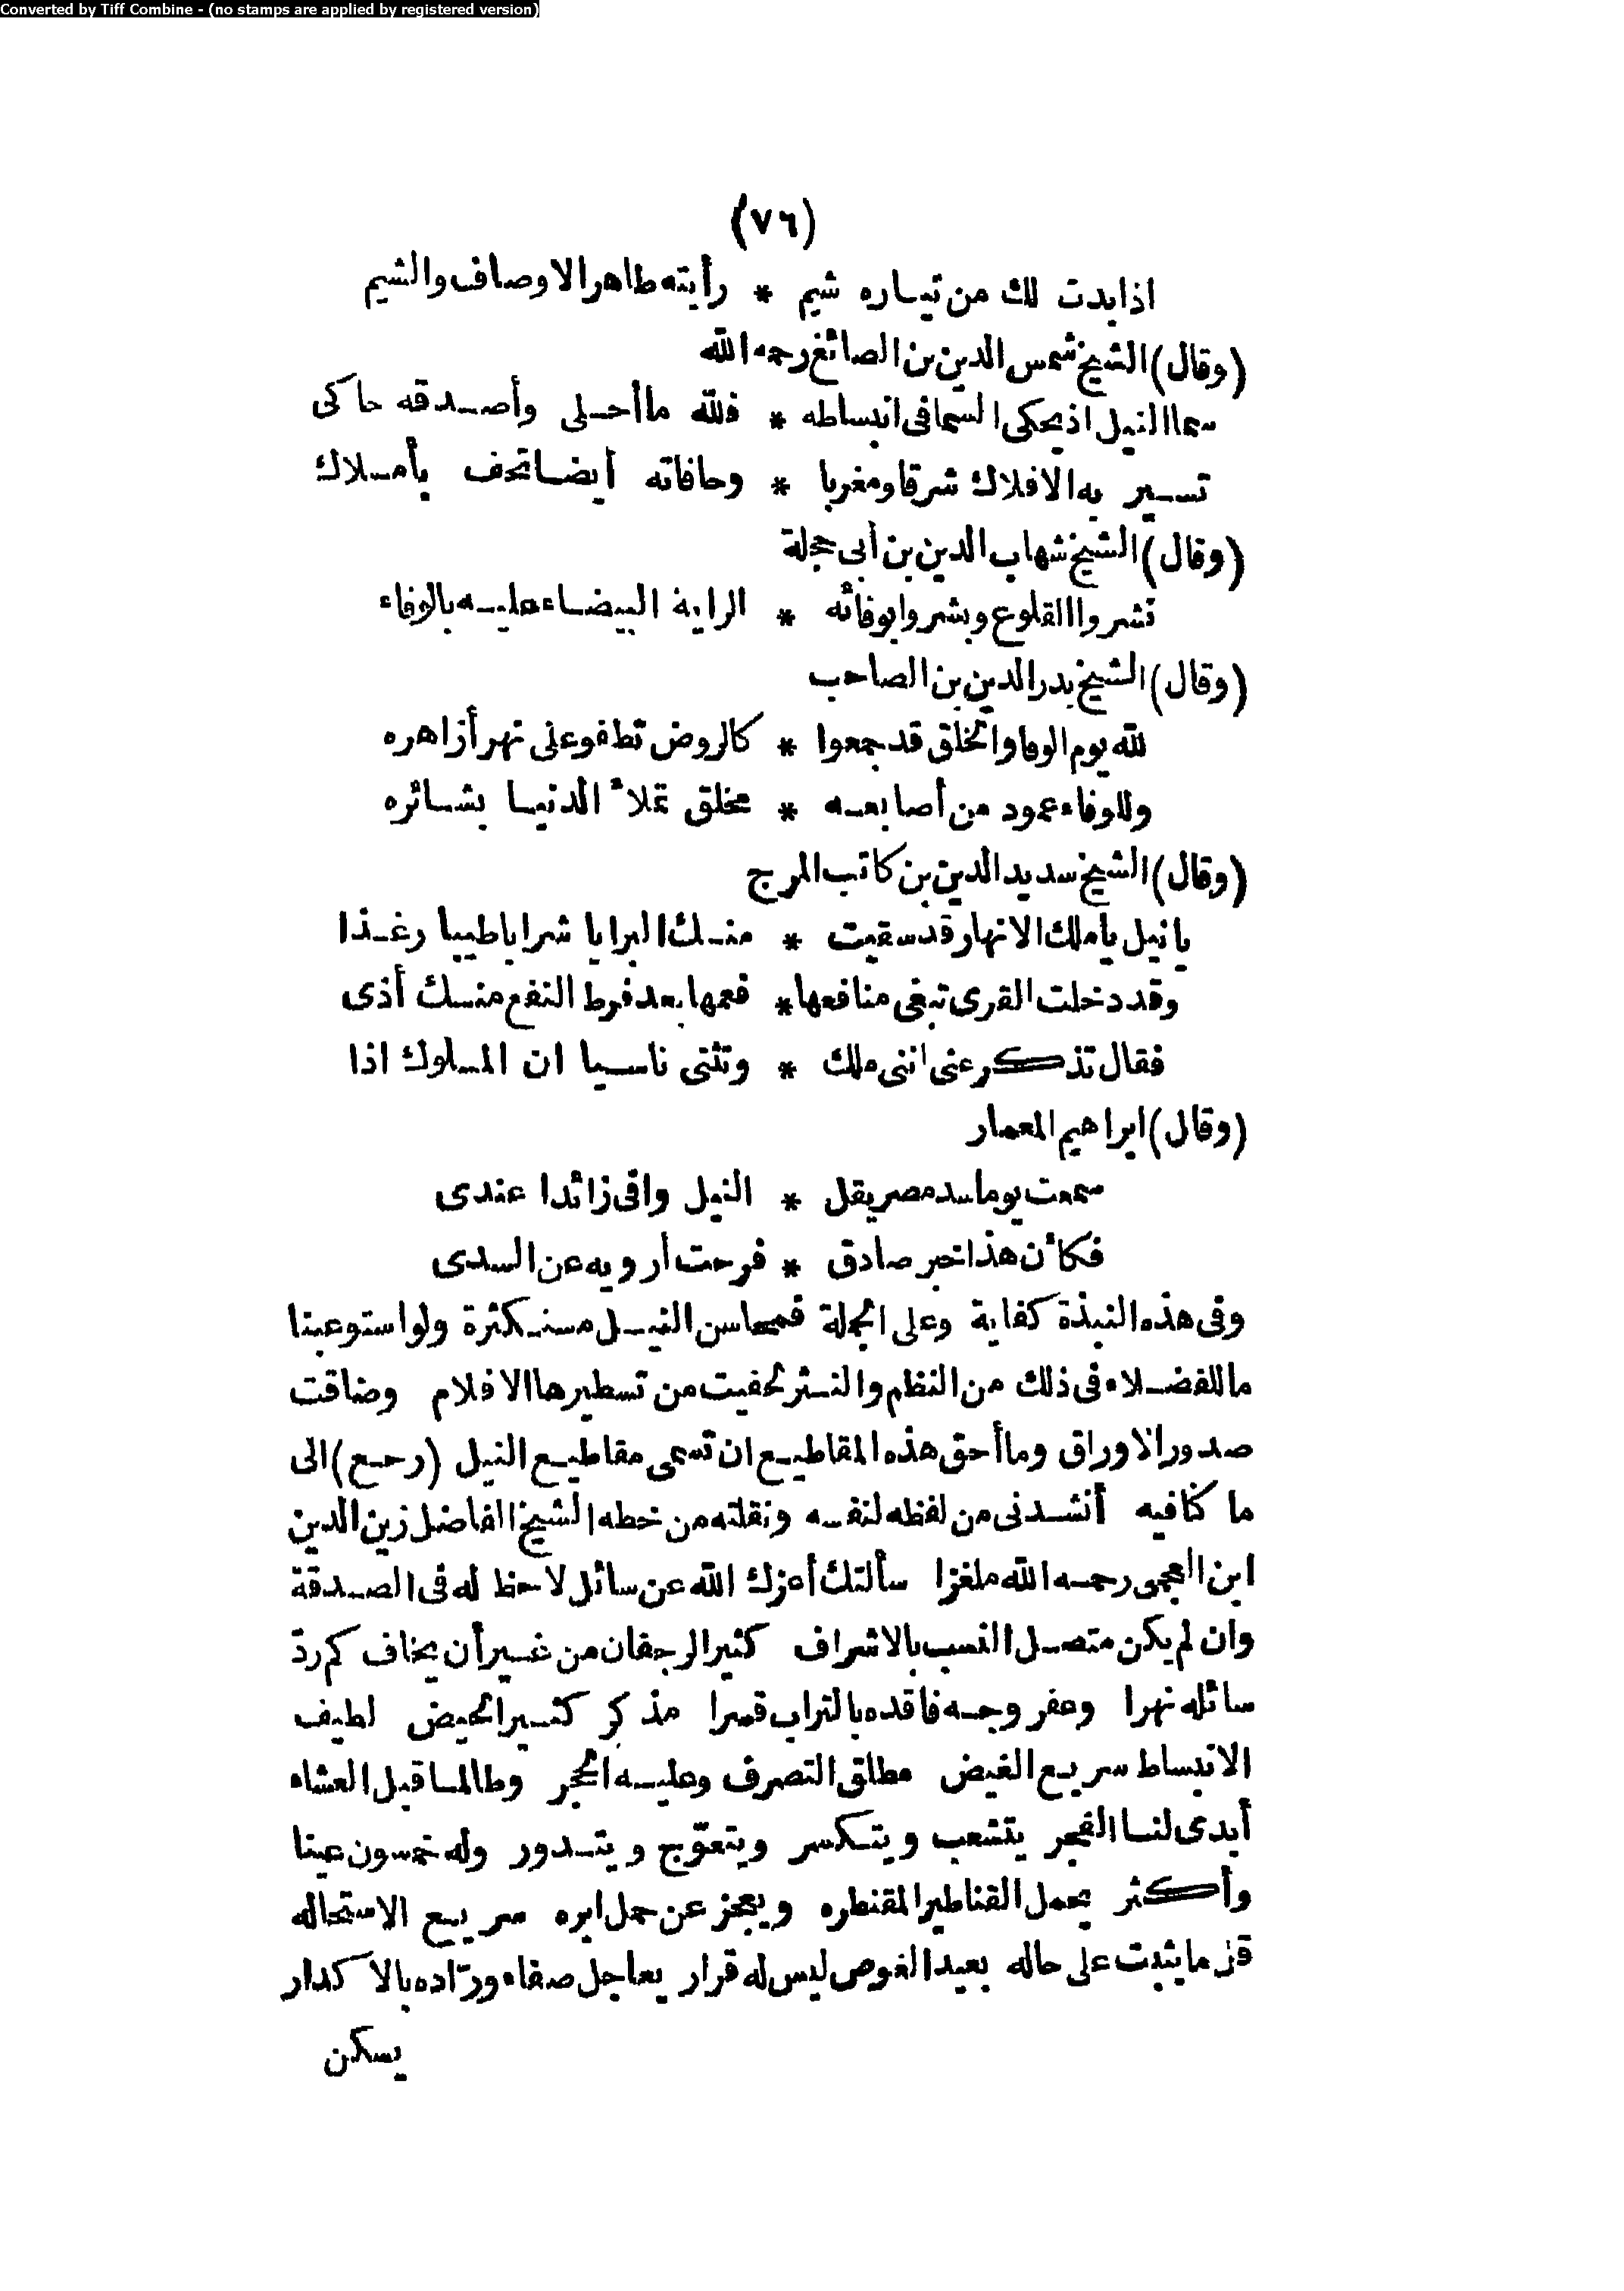 Converted by Tiff Combine - (no stamps are applied by registered version)
(٧٦)
اذابدت لك من تياره شيم * رأيته طاهر الاوصاف والشيم
(وقال) الشيخ شمس الدين بن الصائغ رحمه الله
سما النيل اذ يحكى السما فى انبساطه * فلله ما أحلى وأصدقه حاكى
تسير به الافلاك شرقا ومغربا * وحافاته أيضا تحف بأملاك
(وقال) الشيخ شهاب الدين بن أبى حجلة
نشروا القلوع وبشروا بوفائه * الراية البيضاء عليه بالوفاء
(وقال) الشيخ بدر الدين بن الصاحب
لله يوم الوفا والخلق قد جمعوا * كالروض تطفو على نهر أزاهره
وللوفاء عمود من أصابعه * مخلق تملأ الدنيا بشائره
(وقال) الشيخ سديد الدين بن كاتب المرج
يانيل ياملك الانهار قد سقيت * منك البرايا شرابا طيبا رغذا
وقد دخلت القرى تبغى منافعها * فعمها بعد فرط النفع منك أذى
فقال تذكر عنى اننى ملك * وتنثى ناسيا ان الملوك اذا
(وقال) ابراهيم المعمار
سمعت يوما سد مصر يقل * النيل وافى زائدا عندى
فكأن هذا خبر صادق * فرحت أرويه عن السدى
وفى هذه النبذة كفاية وعلى الجملة فمحاسن النيل مستكثرة ولو استوعبنا
ما للفضلاء فى ذلك من النظم والنثر لحفيت من تسطيرها الاقلام وضاقت
صدور الاوراق وما أحق هذه المقاطيع ان تسمى مقاطيع النيل (رجع) الى
ما كنا فيه أنشدنى من لفظه لنفسه ونقلته من خطه الشيخ الفاضل زين الدين
ابن العجمى رحمه الله ملغزا سألتك أعزك الله عن سائل لا حظ له فى الصدقة
وان لم يكن متصل النسب بالاشراف كثير الرجفان من غير أن يخاف كم ردّ
سائله نهرا وعفر وجه فاقده بالتراب قسرا مذكر كثير الحيض لطيف
الانبساط سريع الغيض مطلق التصرف وعليه الحجر وطالما قبل العشاء
أبدى لنا الفجر يتشعب ويتكسر ويتعوّج ويتدور وله خمسون عينا
وأكثر يحمل القناطير المقنطره ويعجز عن حمل ابره سريع الاستحاله
قل ما يثبت على حاله بعيد الغوص ليس له قرار يعاجل صفاء ورّاده بالاكدار
يسكن